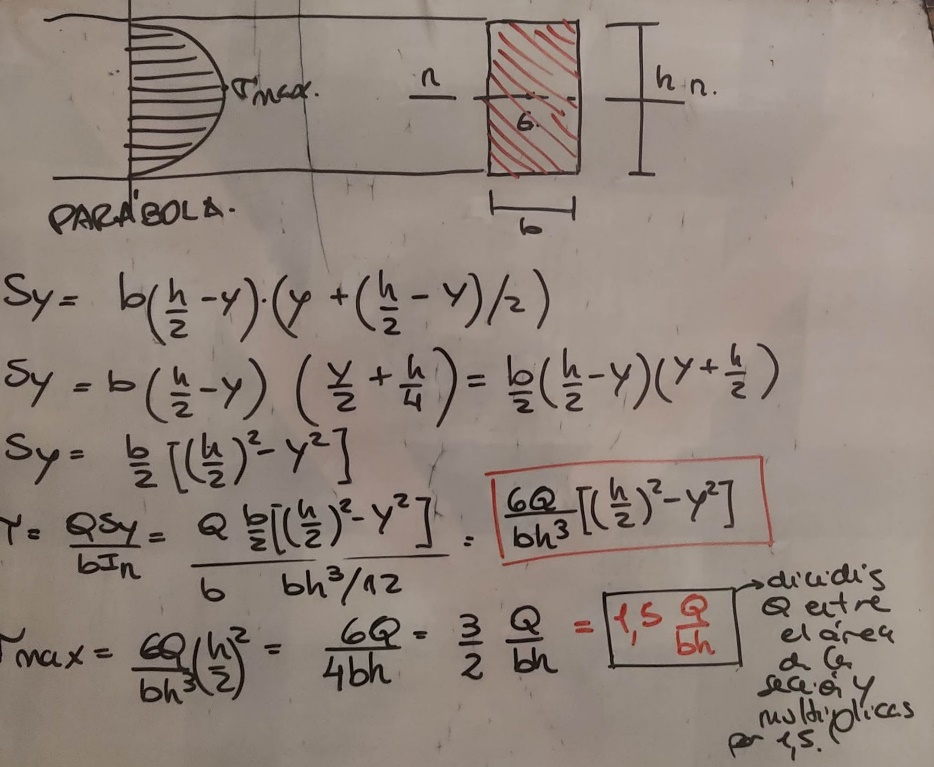 τmax.
n
G.
h n.
b
PARÁBOLA.
Sy = b(h/2 - y)·(y + (h/2 - y)/2)
Sy = b(h/2 - y) (y/2 + h/4) = b/2(h/2 - y)(y + h/2)
Sy = b/2 [(h/2)² - y²]
τ = QSy/bIn = Q b/2[(h/2)² - y²] / b bh³/12 = 6Q/bh³ [(h/2)² - y²]
τmax = 6Q/bh³ (h/2)² = 6Q/4bh = 3/2 Q/bh = 1,5 Q/bh
dividis
Q entre
el área
de la
sección y
multiplicas
por 1,5.